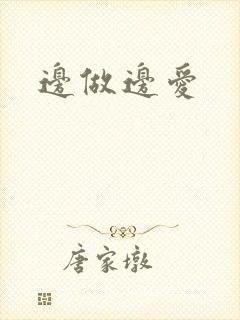 邊做邊愛
唐家墩